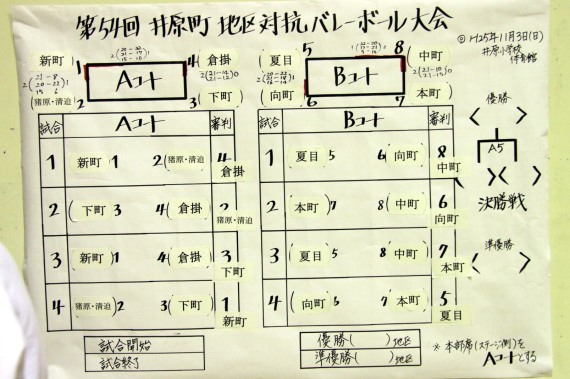 第54回 井原町 地区対抗バレーボール大会
◎H25年11月3日(日)
井原小学校
体育館
新町 1 Aコート 4 倉掛
猪原・清迫 2 3 下町
夏目 5 Bコート 8 中町
向町 6 7 本町
試合 Aコート 審判
1 新町 1 2(猪原・清迫 4 倉掛
2 (下町 3 4(倉掛) 2 猪原・清迫
3 (新町)1 4(倉掛) 3 下町
4 猪原・清迫)2 3(下町) 1 新町
試合開始
試合終了
試合 Bコート 審判
1 (夏目 5 6(向町 8 中町
2 (本町)7 8(中町) 6 向町
3 (夏目 5 8(中町) 7 本町
4 (向町 6 7(本町) 5 夏目
優勝( )地区
準優勝( )地区
優勝
A5
決勝戦
準優勝
※本部席(ステージ側)を
Aコートとする